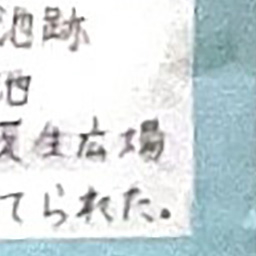 池跡
池
生広場
てられた。